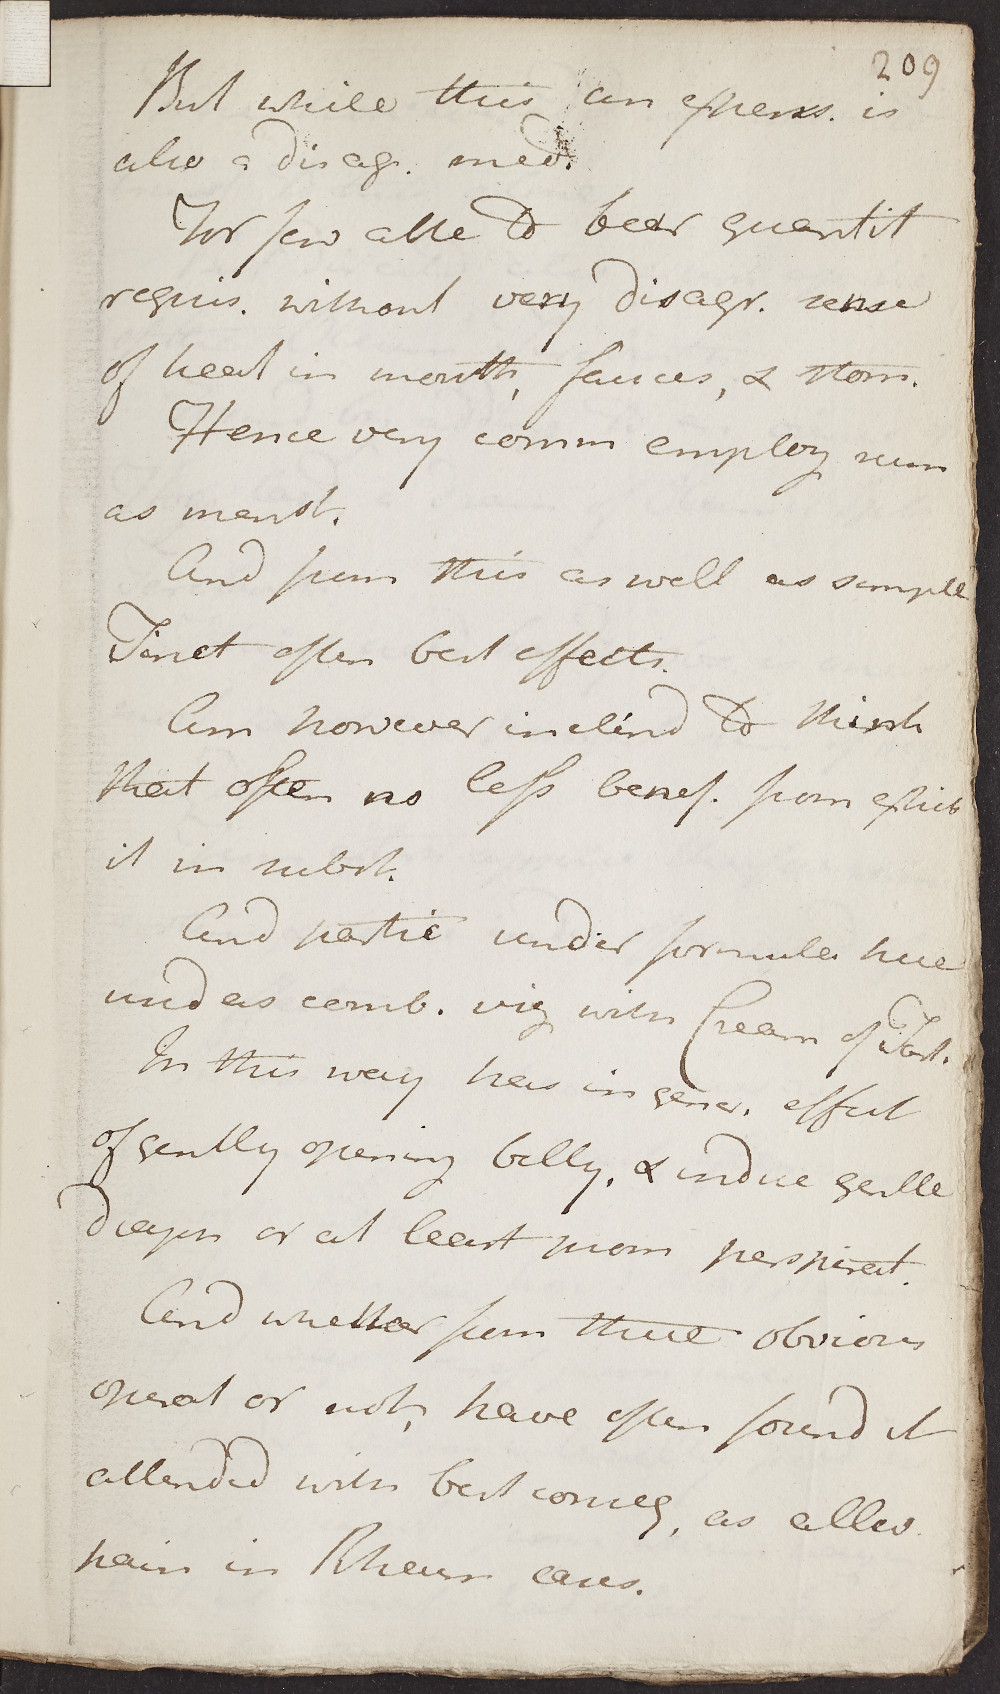 209
But while this an expens. is
also a disagr. med.
For few able to bear quantit
requis. without very disagr. sense
of heat in mouth, fauces, & stom.
Hence very comm employ rum
as menst.
And from this as well as simple
Tinct often best effects.
Am however inclind to think
that often no less benef. from exhib
it in subst.
And partic under formula here
und as comb. viz with Cream of Tart.
In this way has in gener. effect
of gently opening belly, & induce gentle
diaph or at least prom perspirat.
And whether from these obvious
operat or not, have often found it
attended with best conseq, as allev.
pain in Rheum cases.